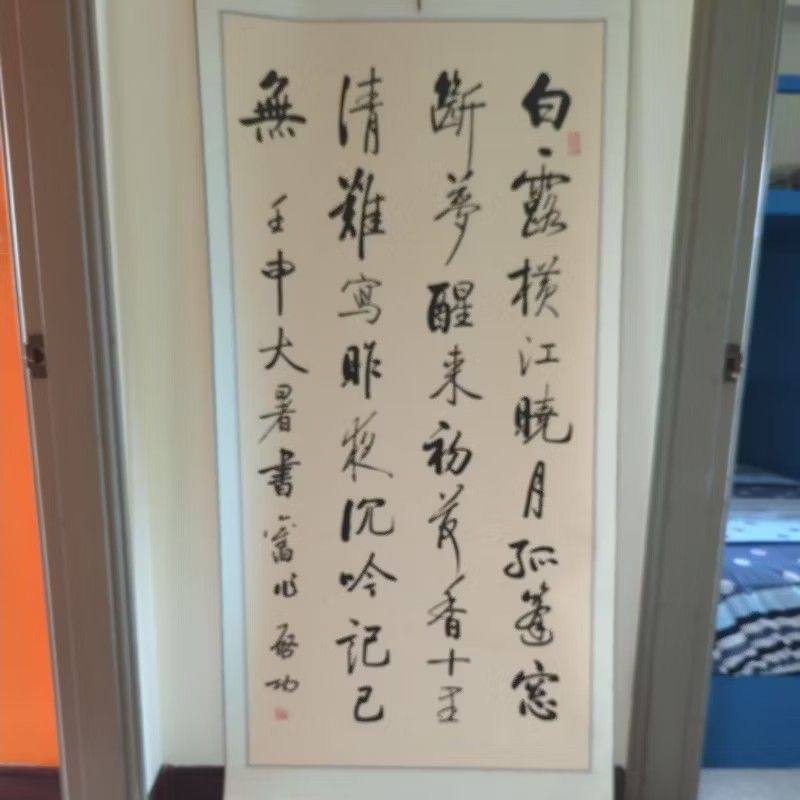 白露横江曉月孤篷窓
斷夢醒来初荷香十里
清難寫昨夜沉吟記已
無 壬申大暑書舊作 啓功